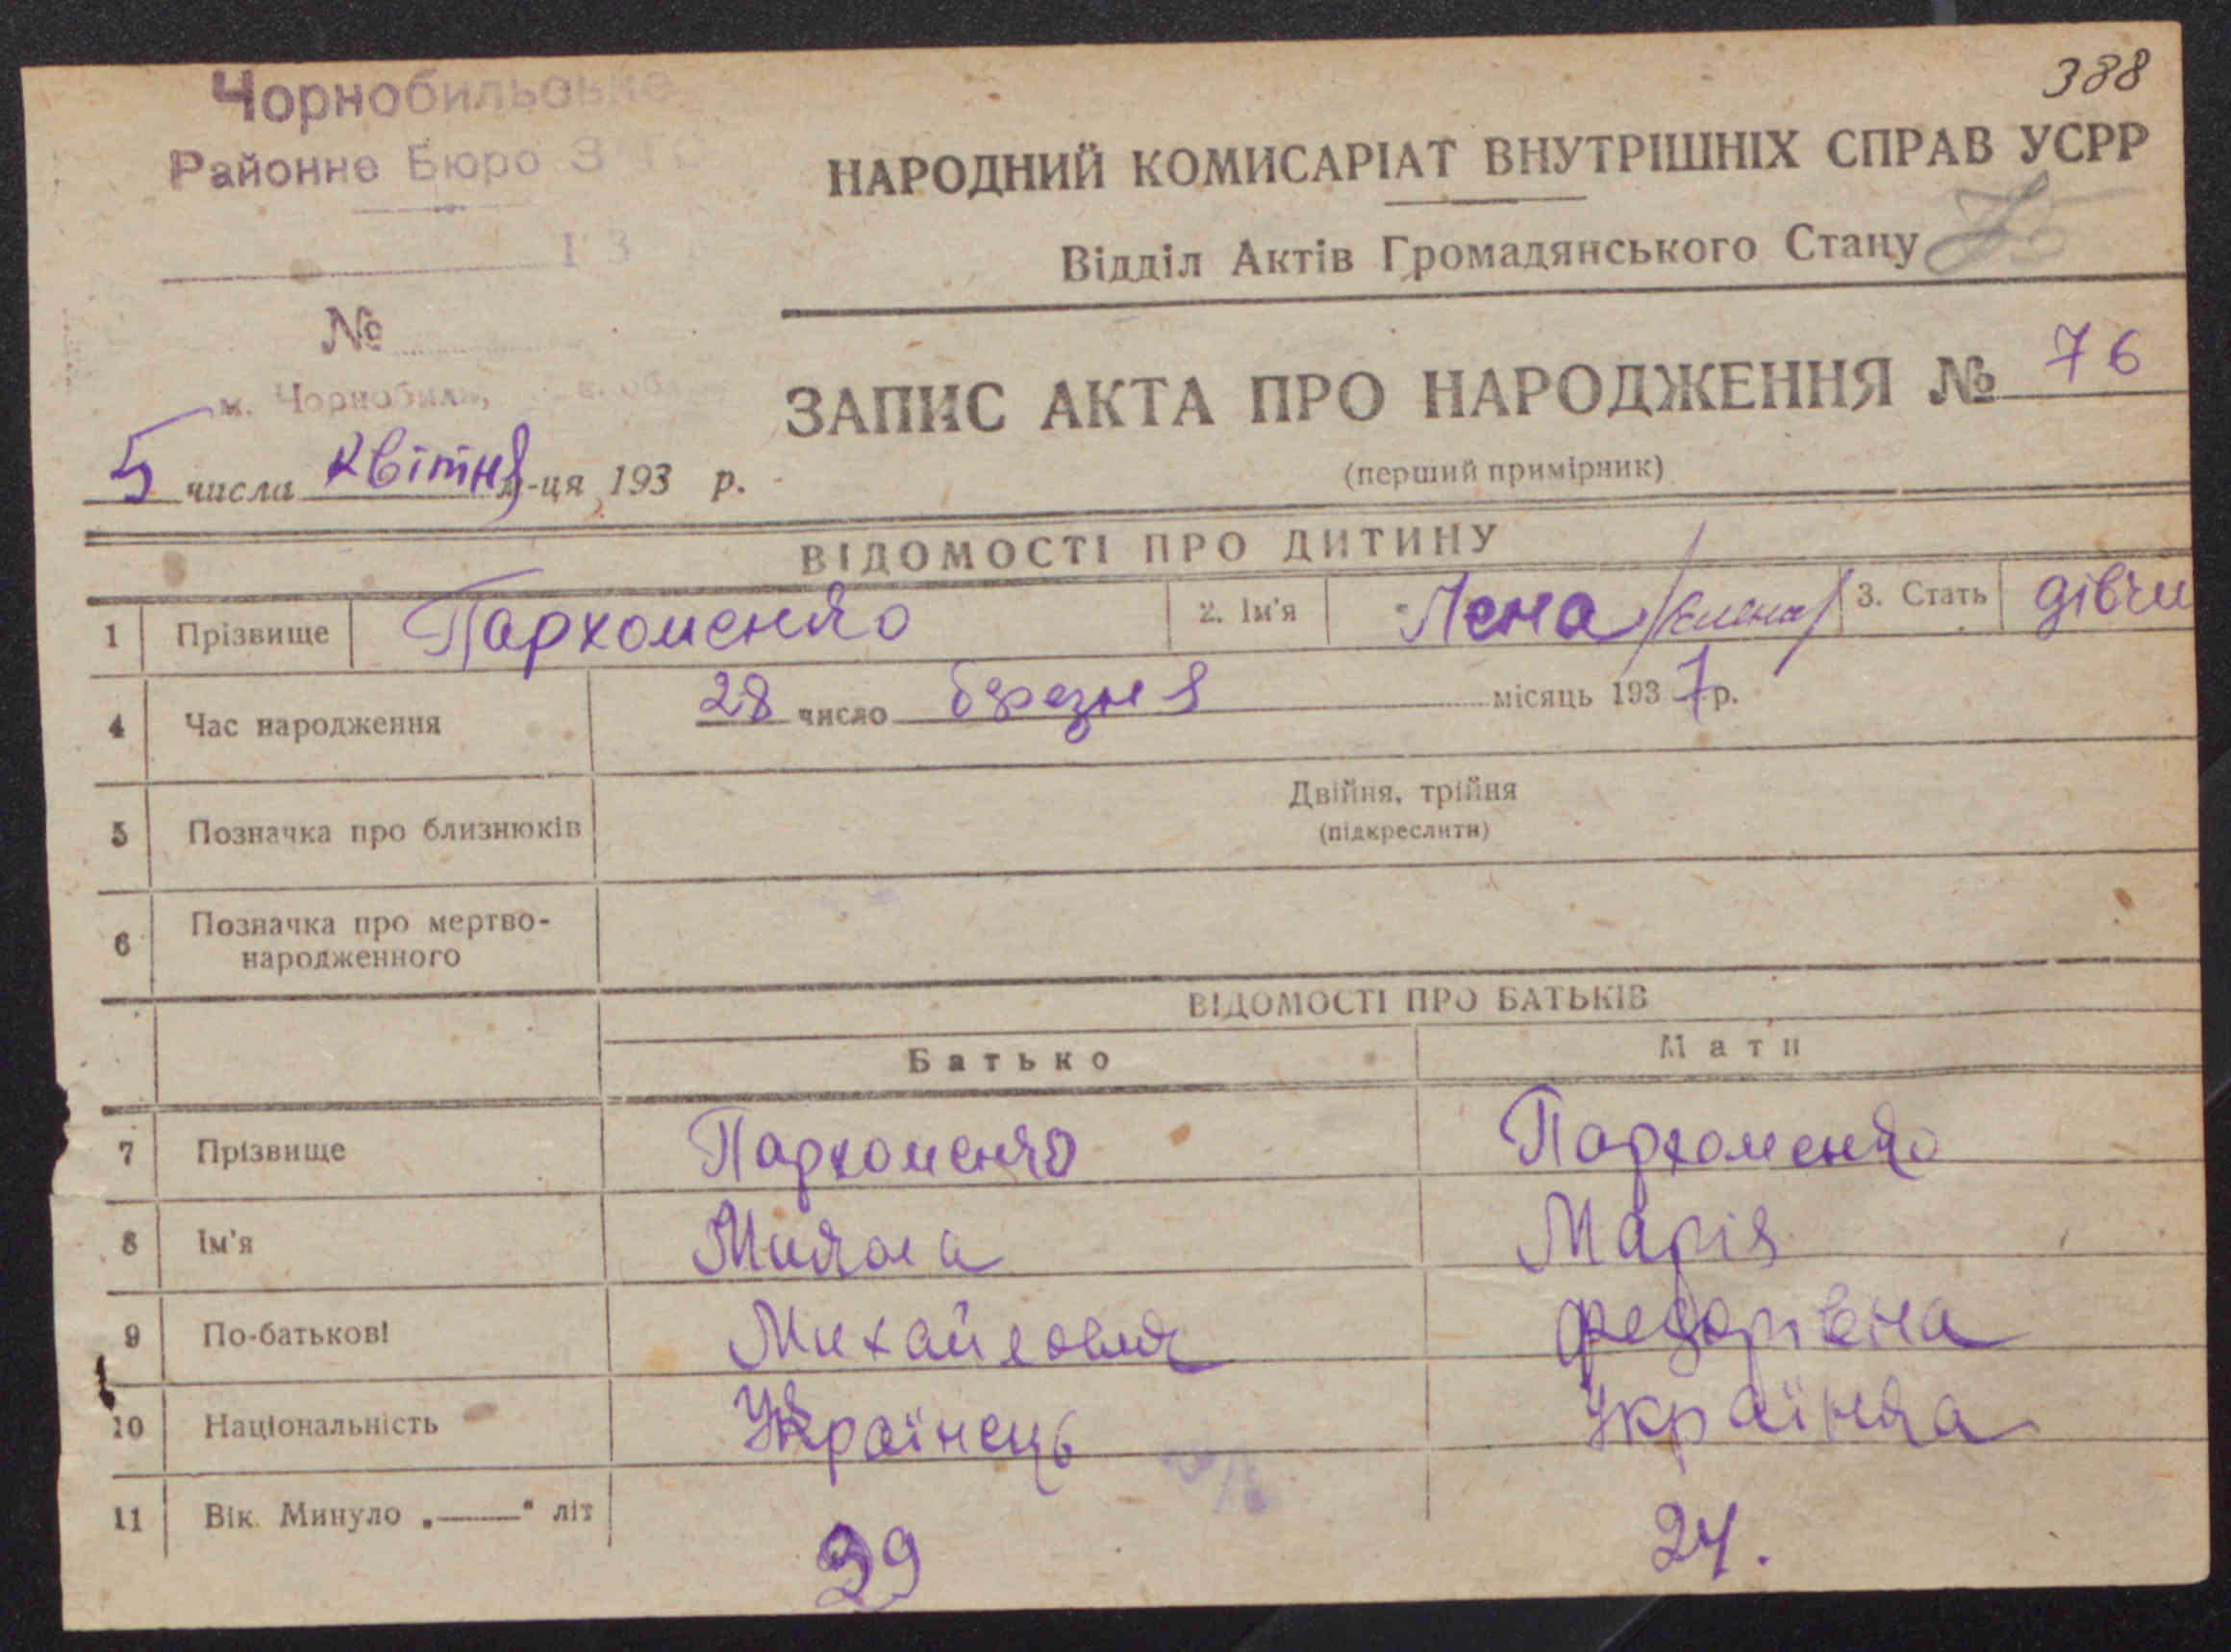 388
Чорнобильське
Районне Бюро
НАРОДНИЙ КОМИСАРІАТ ВНУТРІШНІХ СПРАВ УСРР
Відділ Актів Громадянського Стану
№
м. Чорнобиль,
ЗАПИС АКТА ПРО НАРОДЖЕННЯ № 76
5 числа квітня м-ця 193 р.
(перший примірник)
ВІДОМОСТІ ПРО ДИТИНУ
1 Прізвище Пархоменко 2. Ім'я Лена /Єлена/ 3. Стать дівчи
4 Час народження 28 число березня місяць 1937 р.
5 Позначка про близнюків Двійня, трійня
(підкреслити)
6 Позначка про мертво-
народженного
ВІДОМОСТІ ПРО БАТЬКІВ
Батько Мати
7 Прізвище Пархоменко Пархоменко
8 Ім'я Микола Марія
9 По-батькові Михайлович Федорівна
10 Національність Українець Українка
11 Вік. Минуло „——“ літ 29 24.